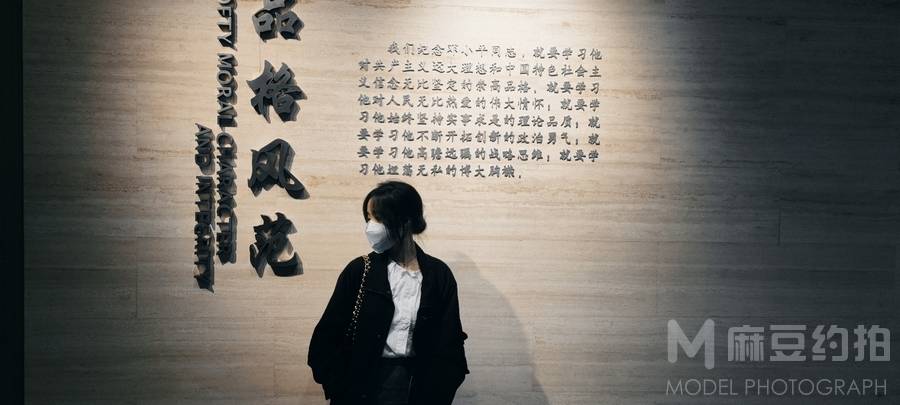 品格风范
OFTY MORAL CHARACTER
AND INTEGRITY
我们纪念邓小平同志，就要学习他
对共产主义远大理想和中国特色社会主
义信念无比坚定的崇高品格，就要学习
他对人民无比热爱的伟大情怀；就要学
习他始终坚持实事求是的理论品质；就
要学习他不断开拓创新的政治勇气；就
要学习他高瞻远瞩的战略思维；就要学
习他坦荡无私的博大胸襟。
M 麻豆约拍
MODEL PHOTOGRAPH